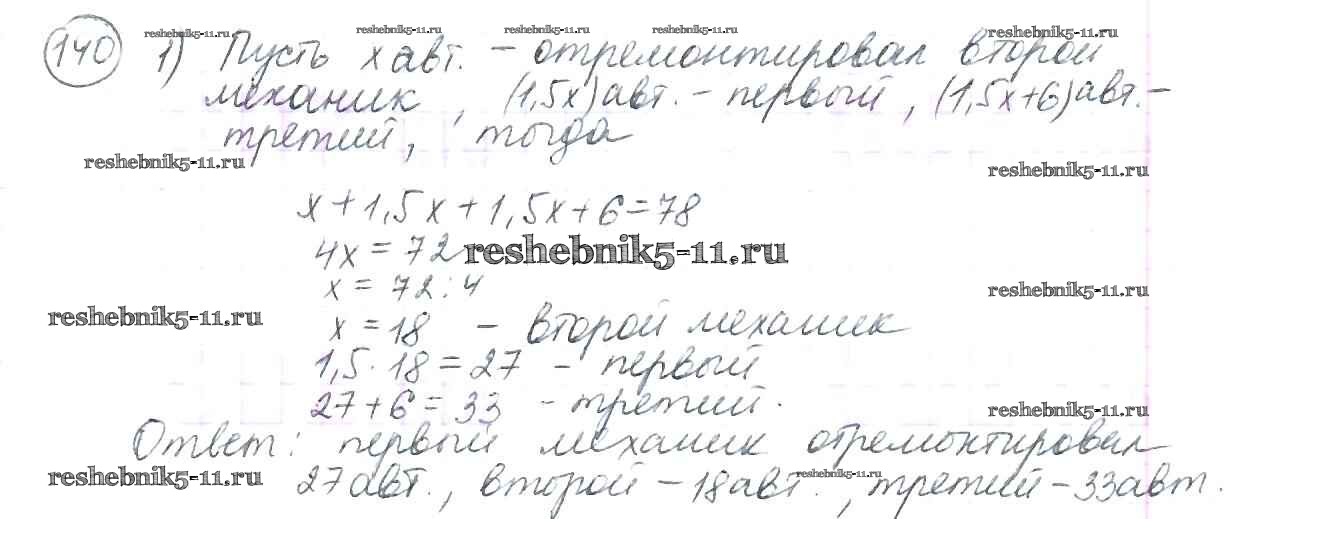 reshebnik5-11.ru reshebnik5-11.ru reshebnik5-11.ru reshebnik5-11.ru reshebnik5-11.ru
140 1) Пусть x авт. – отремонтировал второй
механик, (1,5x) авт. – первый, (1,5x+6) авт. –
третий, тогда
reshebnik5-11.ru reshebnik5-11.ru
x+1,5x+1,5x+6=78
4x=72
reshebnik5-11.ru
x=72:4
reshebnik5-11.ru reshebnik5-11.ru
x=18 – второй механик
1,5·18=27 – первый
27+6=33 – третий.
reshebnik5-11.ru
Ответ: первый механик отремонтировал
reshebnik5-11.ru reshebnik5-11.ru
27 авт., второй – 18 авт., третий – 33 авт.